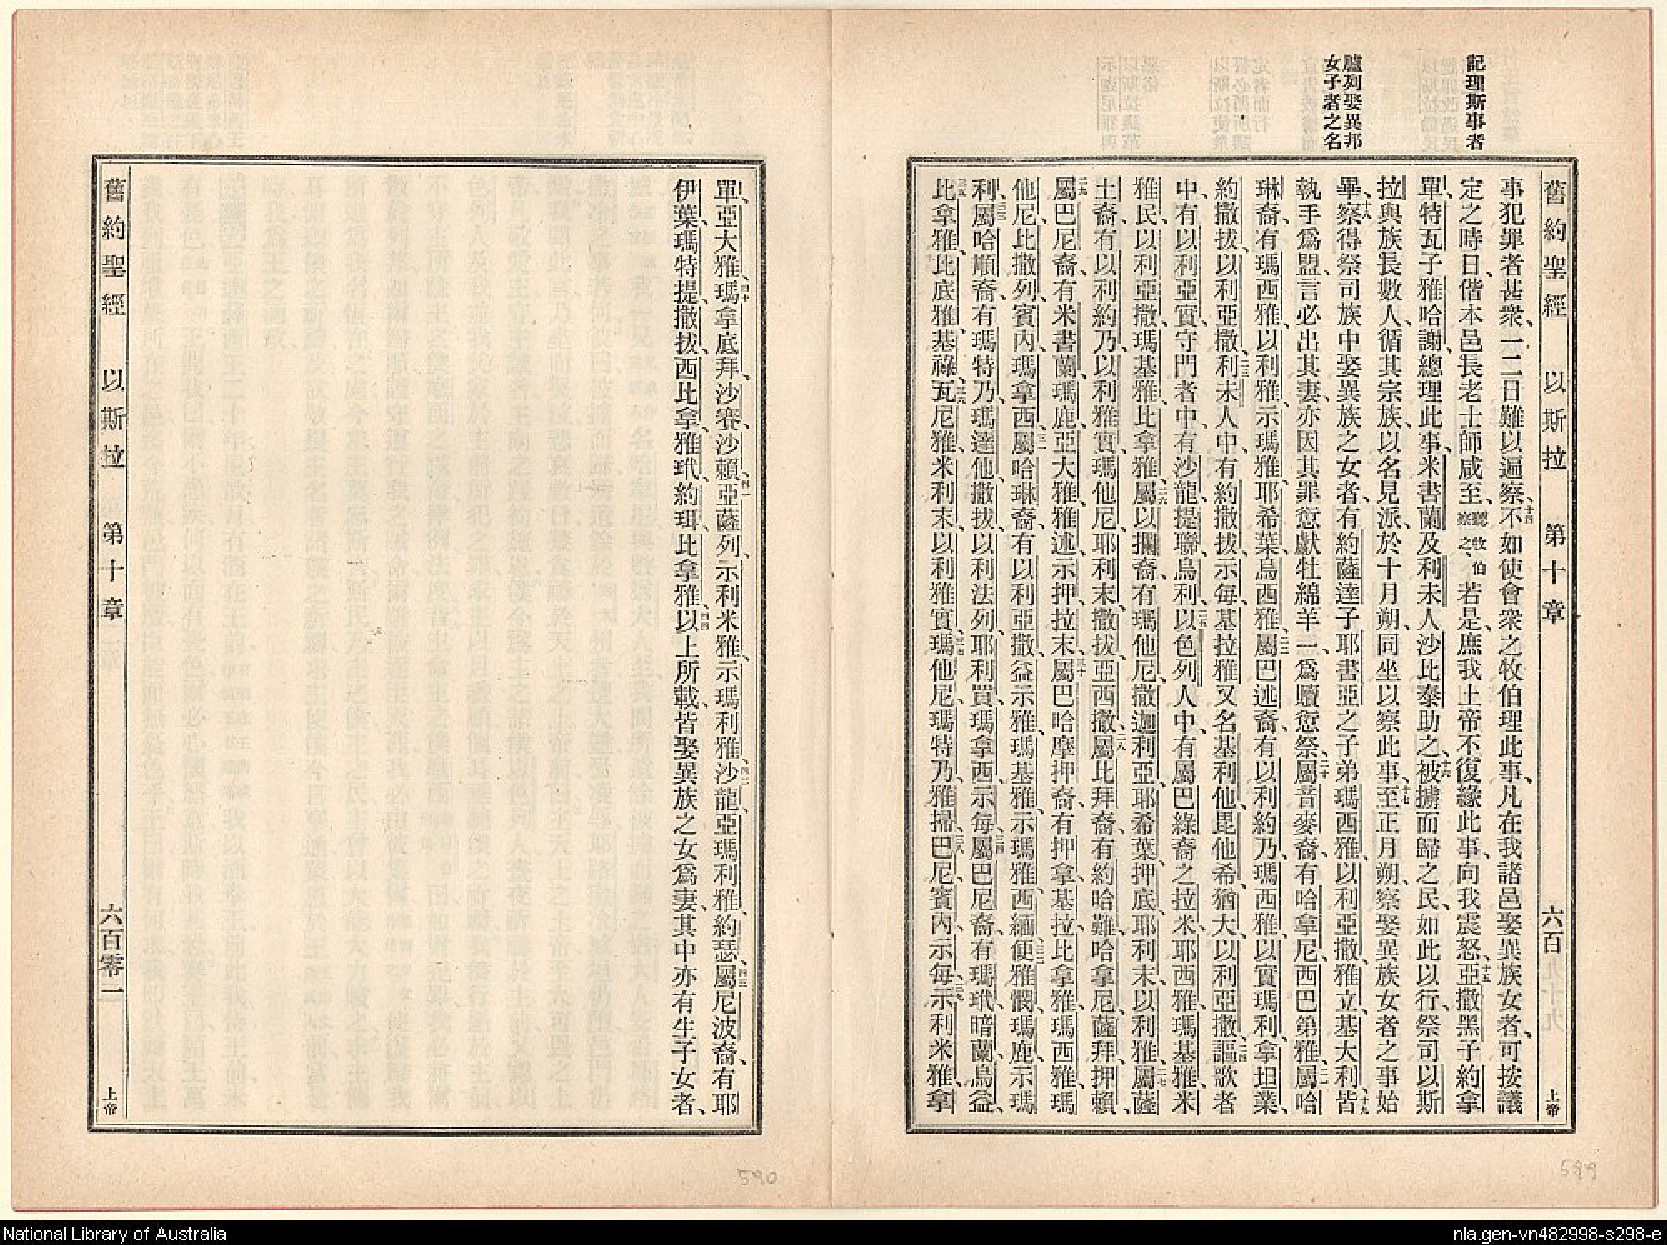 記理斯事者
臚列娶異邦
女子者之名
舊約聖經 以斯拉 第十章 六百 上帝
事犯罪者甚衆、一二日難以遍察、十四不如使會衆之牧伯理此事、凡在我諸邑娶異族女者、可按議
定之時日、偕本邑長老士師咸至、聽牧伯察之、若是、庶我上帝不復緣此事向我震怒、十五亞撒黑子約拿
單、特瓦子雅哈謝總理此事、米書蘭及利未人沙比泰助之、十六被擄而歸之民、如此以行、祭司以斯
拉、與族長數人、循其宗族、以名見派、於十月朔、同坐以察此事、十七至正月朔、察娶異族女者之事始
畢、十八察得祭司族中娶異族之女者、有約薩達子耶書亞之子弟瑪西雅、以利亞撒、雅立、基大利、十九皆
執手爲盟、言必出其妻、亦因其罪愆獻牡綿羊一、爲贖愆祭、二十屬音麥裔、有哈拿尼、西巴第雅、二一屬哈
琳裔、有瑪西雅、以利雅、示瑪雅、耶希葉、烏西雅、二二屬巴述裔、有以利約乃、瑪西雅、以實瑪利、拿坦業、
約撒拔、以利亞撒、二三利未人中、有約撒拔、示每、基拉雅、又名基利他、毘他希、猶大、以利亞撒、二四謳歌者
中、有以利亞實、守門者中、有沙龍、提聯、烏利、二五以色列人中、有屬巴綠裔之拉米、耶西雅、瑪基雅、米
雅民、以利亞撒、瑪基雅、比拿雅、二六屬以攔裔、有瑪他尼、撒迦利亞、耶希葉、押底、耶利末、以利雅、二七屬薩
土裔、有以利約乃、以利雅實、瑪他尼、耶利末、撒拔、亞西撒、二八屬比拜裔、有約哈難、哈拿尼、薩拜、押賴、
二九屬巴尼裔、有米書蘭、瑪鹿、亞大雅、雅述、示押、拉末、三十屬巴哈摩押裔、有押拿、基拉、比拿雅、瑪西雅、瑪
他尼、比撒列、賓內、瑪拿西、三一屬哈琳裔、有以利亞撒、益示雅、瑪基雅、示瑪雅、西緬、三二便雅憫、瑪鹿、示瑪
利、三三屬哈順裔、有瑪特乃、瑪達他、撒拔、以利法列、耶利買、瑪拿西、示每、三四屬巴尼裔、有瑪玳、暗蘭、烏益、
三五比拿雅、比底雅、基祿、三六瓦尼雅、米利末、以利雅實、三七瑪他尼、瑪特乃、雅掃、三八巴尼、賓內、示每、三九示利米雅、拿
單、亞大雅、四十瑪拿底拜、沙賽、沙賴、四一亞薩列、示利米雅、示瑪利雅、四二沙龍、亞瑪利雅、約瑟、四三屬尼波裔、有耶
伊葉、瑪特提、撒拔、西比拿、雅玳、約珥、比拿雅、四四以上所載、皆娶異族之女爲妻、其中亦有生子女者、
舊約聖經 以斯拉 第十章 六百零二 上帝
590
599
National Library of Australia
nla.gen-vn482998-s298-e